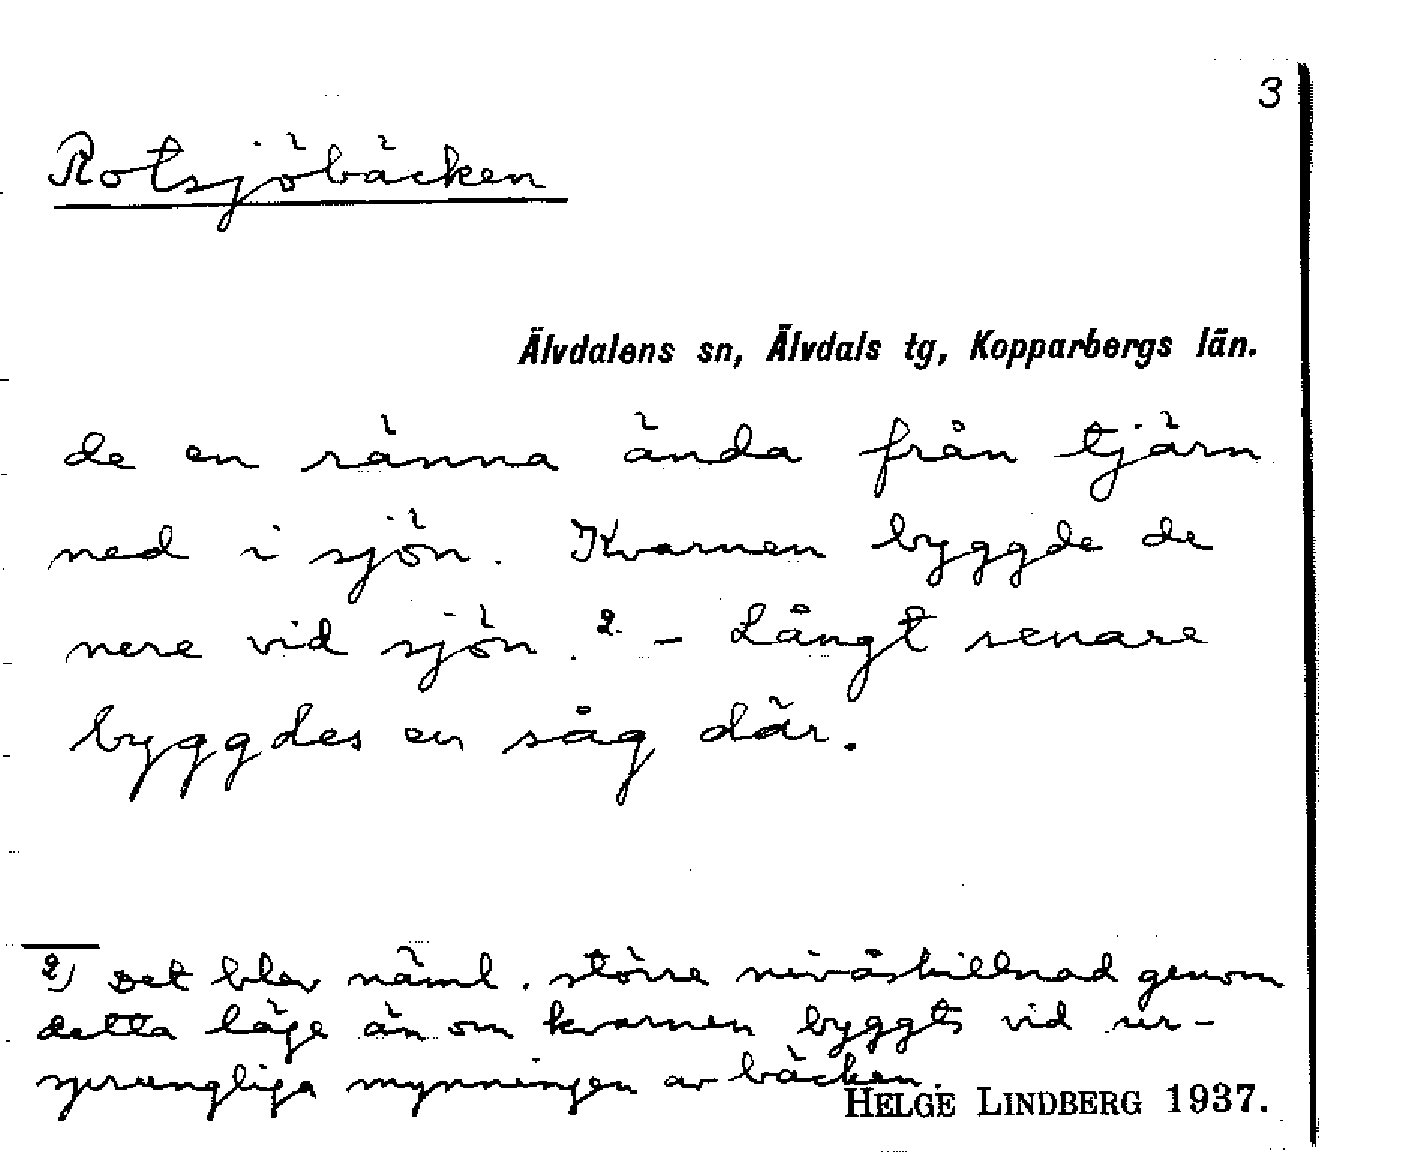 3
Rotsjöbäcken
Älvdalens sn, Älvdals tg, Kopparbergs län.
de en ränna ända från tjärn
ned i sjön. Kvarnen byggde de
nere vid sjön.² – Långt senare
byggdes en såg där.
2) Det blev näml. större nivåskillnad genom
detta läge än om kvarnen byggts vid ur-
sprungliga mynningen av bäcken.
HELGE LINDBERG 1937.